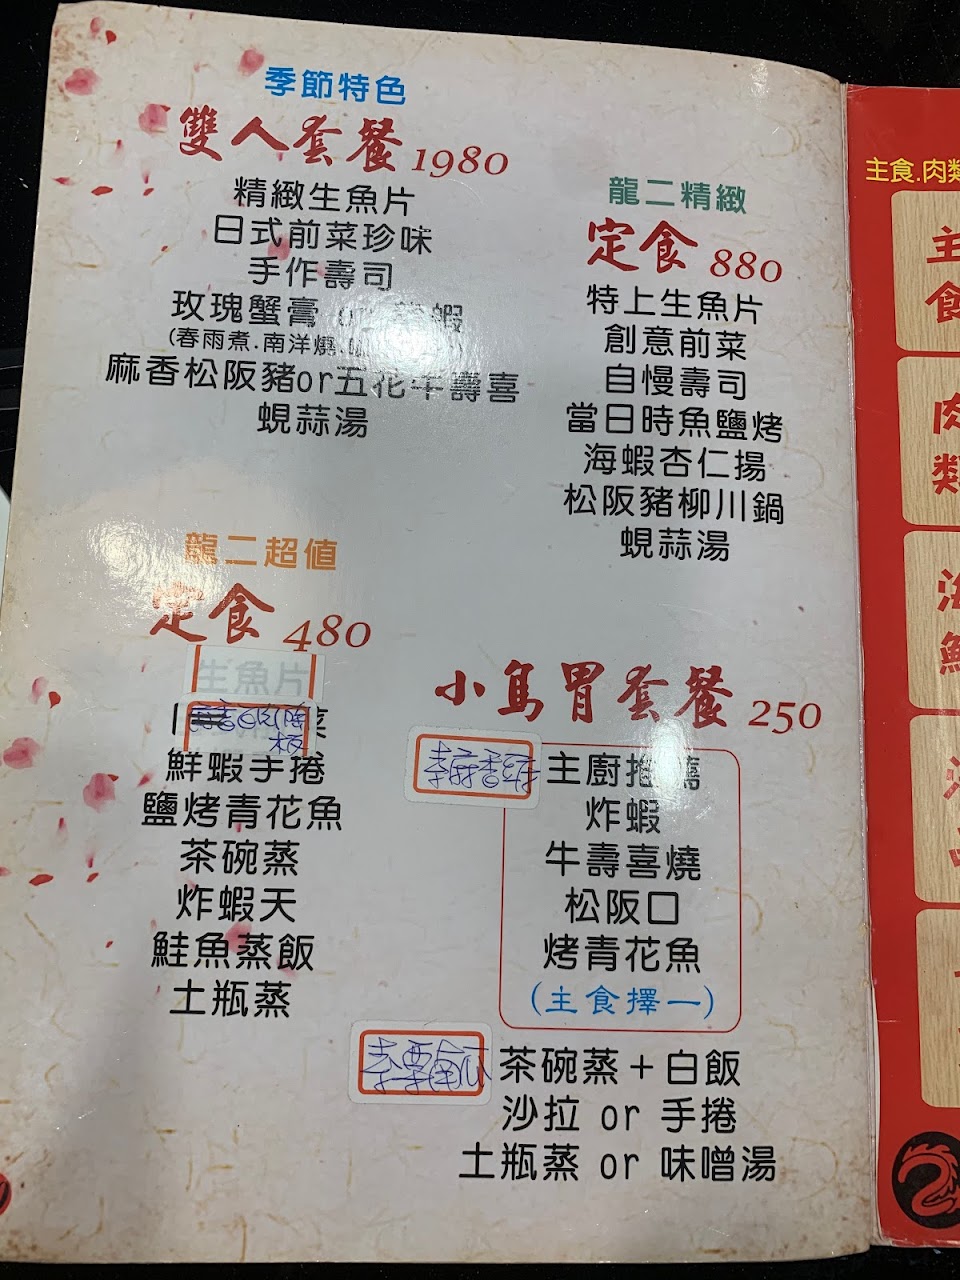 季節特色
雙人套餐 1980
精緻生魚片
日式前菜珍味
手作壽司
玫瑰蟹膏 or 蝦
(春雨煮.南洋燒.
麻香松阪豬or五花牛壽喜
蜆蒜湯
龍二精緻
定食 880
特上生魚片
創意前菜
自慢壽司
當日時魚鹽烤
海蝦杏仁揚
松阪豬柳川鍋
蜆蒜湯
龍二超值
定食 480
生魚片
菜
鮮蝦手捲
鹽烤青花魚
茶碗蒸
炸蝦天
鮭魚蒸飯
土瓶蒸
小鳥胃套餐 250
主廚推薦
炸蝦
牛壽喜燒
松阪口
烤青花魚
(主食擇一)
南瓜
茶碗蒸+白飯
沙拉 or 手捲
土瓶蒸 or 味噌湯
主食.肉類
主食
肉類
海鮮